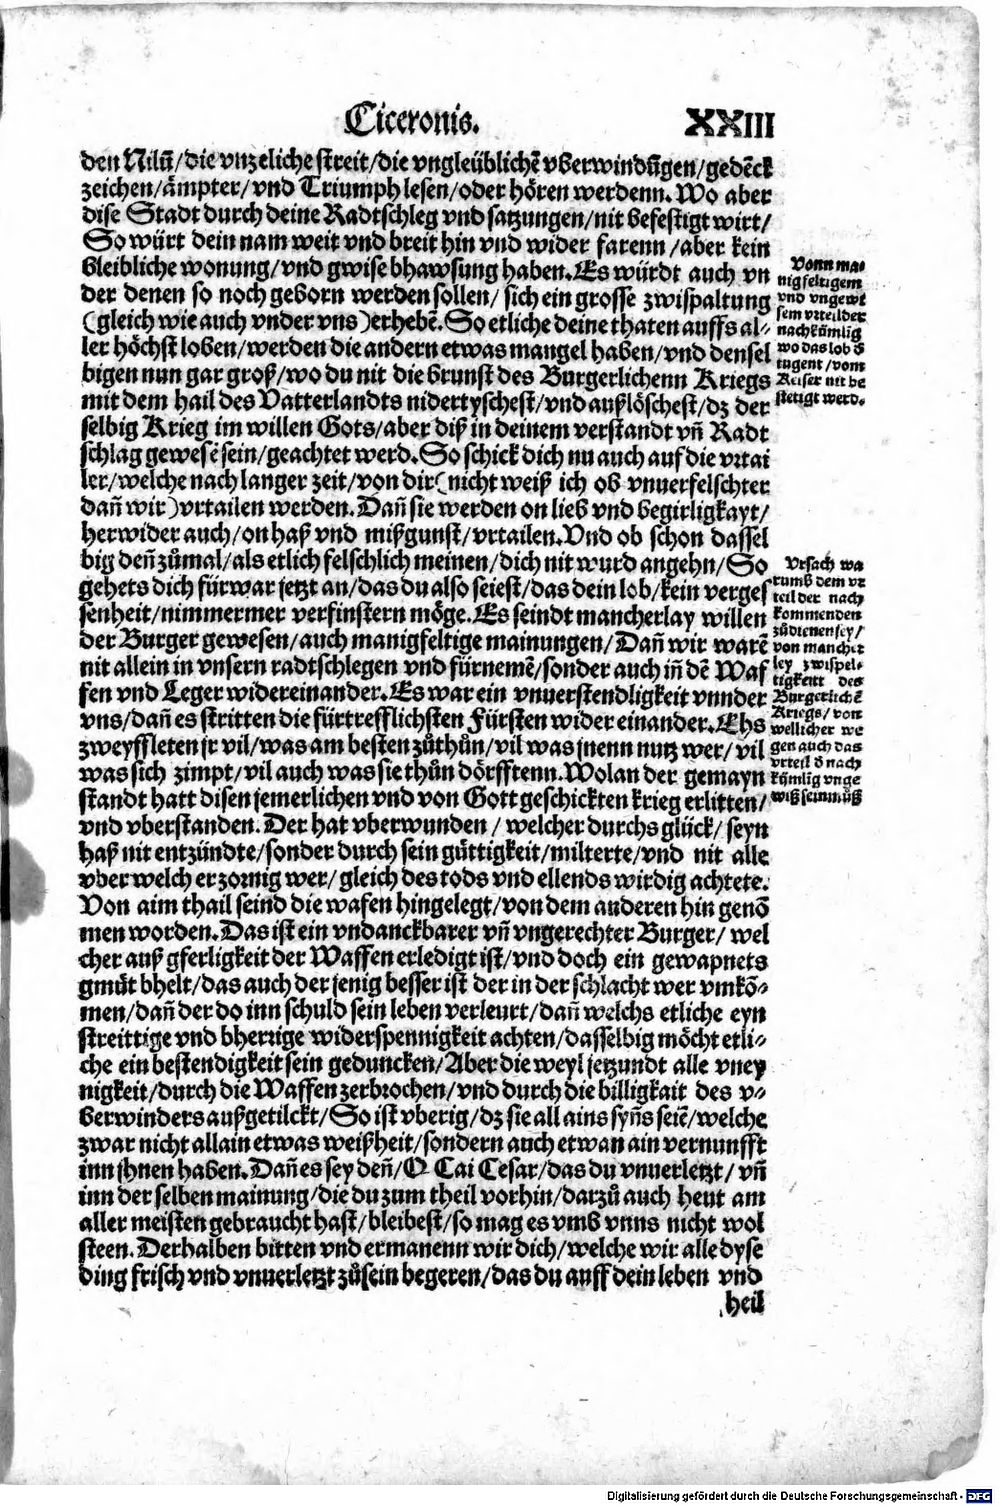 Ciceronis. XXIII
den Nilū/die vnzeliche streit/die vngleüblichē vberwindūgen/gedēck
zeichen/ämpter/vnd Triumph lesen/oder hören werdenn. Wo aber
dise Stadt durch deine Radtschleg vnd satzungen/nit befestigt wirt/
So würt dein nam weit vnd breit hin vnd wider farenn/aber kein
bleibliche wonung/vnd gwise bhawsung haben. Es würdt auch vn
der denen so noch geborn werden sollen/ sich ein grosse zwispaltung
(gleich wie auch vnder vns) erhebē. So etliche deine thaten auffs al⸗
ler höchst loben/werden die andern etwas mangel haben/vnd densel
bigen nun gar groß/wo du nit die brunst des Burgerlichenn Kriegs
mit dem hail des Vatterlandts nidertyschest/vnd außlöschest/dz der
selbig Krieg im willen Gots/aber diß in deinem verstandt vñ Radt
schlag gewesē sein/geachtet werd. So schick dich nu auch auf die vrtai
ler/welche nach langer zeit/von dir (nicht weiß ich ob vnuerfelschter
dañ wir) vrtailen werden. Dañ sie werden on lieb vnd begirligkayt/
herwider auch/on haß vnd mißgunst/vrtailen. Vnd ob schon dassel
big deñ zůmal/als etlich felschlich meinen/dich nit wurd angehn/So
gehets dich fürwar jetzt an/das du also seiest/das dein lob/kein verges
senheit/nimmermer verfinstern möge. Es seindt mancherlay willen
der Burger gewesen/auch manigfeltige mainungen/Dañ wir warē
nit allein in vnsern radtschlegen vnd fürnemē/sonder auch iñ dē Waf
fen vnd Leger widereinander. Es war ein vnuerstendligkeit vnnder
vns/dañ es stritten die fürtrefflichsten Fürsten wider einander. Ehs
zweyffleten jr vil/was am besten zůthůn/vil was jnenn nutz wer/vil
was sich zimpt/vil auch was sie thůn dörfftenn. Wolan der gemayn
standt hatt disen jemerlichen vnd von Gott geschickten krieg erlitten/
vnd vberstanden. Der hat vberwunden/welcher durchs glück/seyn
haß nit entzündte/sonder durch sein güttigkeit/milterte/vnd nit alle
vber welch er zornig wer/gleich des tods vnd ellends wirdig achtete.
Von aim thail seind die wafen hingelegt/von dem anderen hin genō
men worden. Das ist ein vndanckbarer vñ vngerechter Burger/wel
cher auß gferligkeit der Waffen erledigt ist/vnd doch ein gewapnets
gmüt bhelt/das auch der jenig besser ist der in der schlacht wer vmkō⸗
men/dañ der do inn schuld sein leben verleurt/dañ welchs etliche eyn
streittige vnd bhertzige widerspennigkeit achten/dasselbig möcht etli⸗
che ein bestendigkeit sein geduncken/Aber die weyl jetzundt alle vney
nigkeit/durch die Waffen zerbrochen/vnd durch die billigkait des v⸗
berwinders außgetilckt/So ist vberig/dz sie all ains syñs seiē/welche
zwar nicht allain etwas weißheit/sondern auch etwan ain vernunfft
inn jhnen haben. Dañ es sey deñ/O Cai Cesar/das du vnuerletzt/vñ
inn der selben mainung/die du zum theil vorhin/darzů auch heut am
aller meisten gebraucht hast/bleibest/so mag es vmb vnns nicht wol
steen. Derhalben bitten vnd ermanenn wir dich/welche wir alle dyse
ding frisch vnd vnuerletzt zůsein begeren/das du auff dein leben vnd
heil
Vonn ma⸗
nigfeltigem
vnd vngewi
sem vrteil der
nachkümlig
wo das lob d̄
tugent/vom
Keiser nit be
stetigt werd.
Vrsach wa
rumb dem vr
teil der nach
kommenden
zůdienen sey/
von mancher
ley zwispel⸗
tigkeitt des
Burgerlichē
Kriegs/von
wellicher we
gen auch das
vrteil d̄ nach
kümlig vnge
wiß sein můß
Digitalisierung gefördert durch die Deutsche Forschungsgemeinschaft - DFG